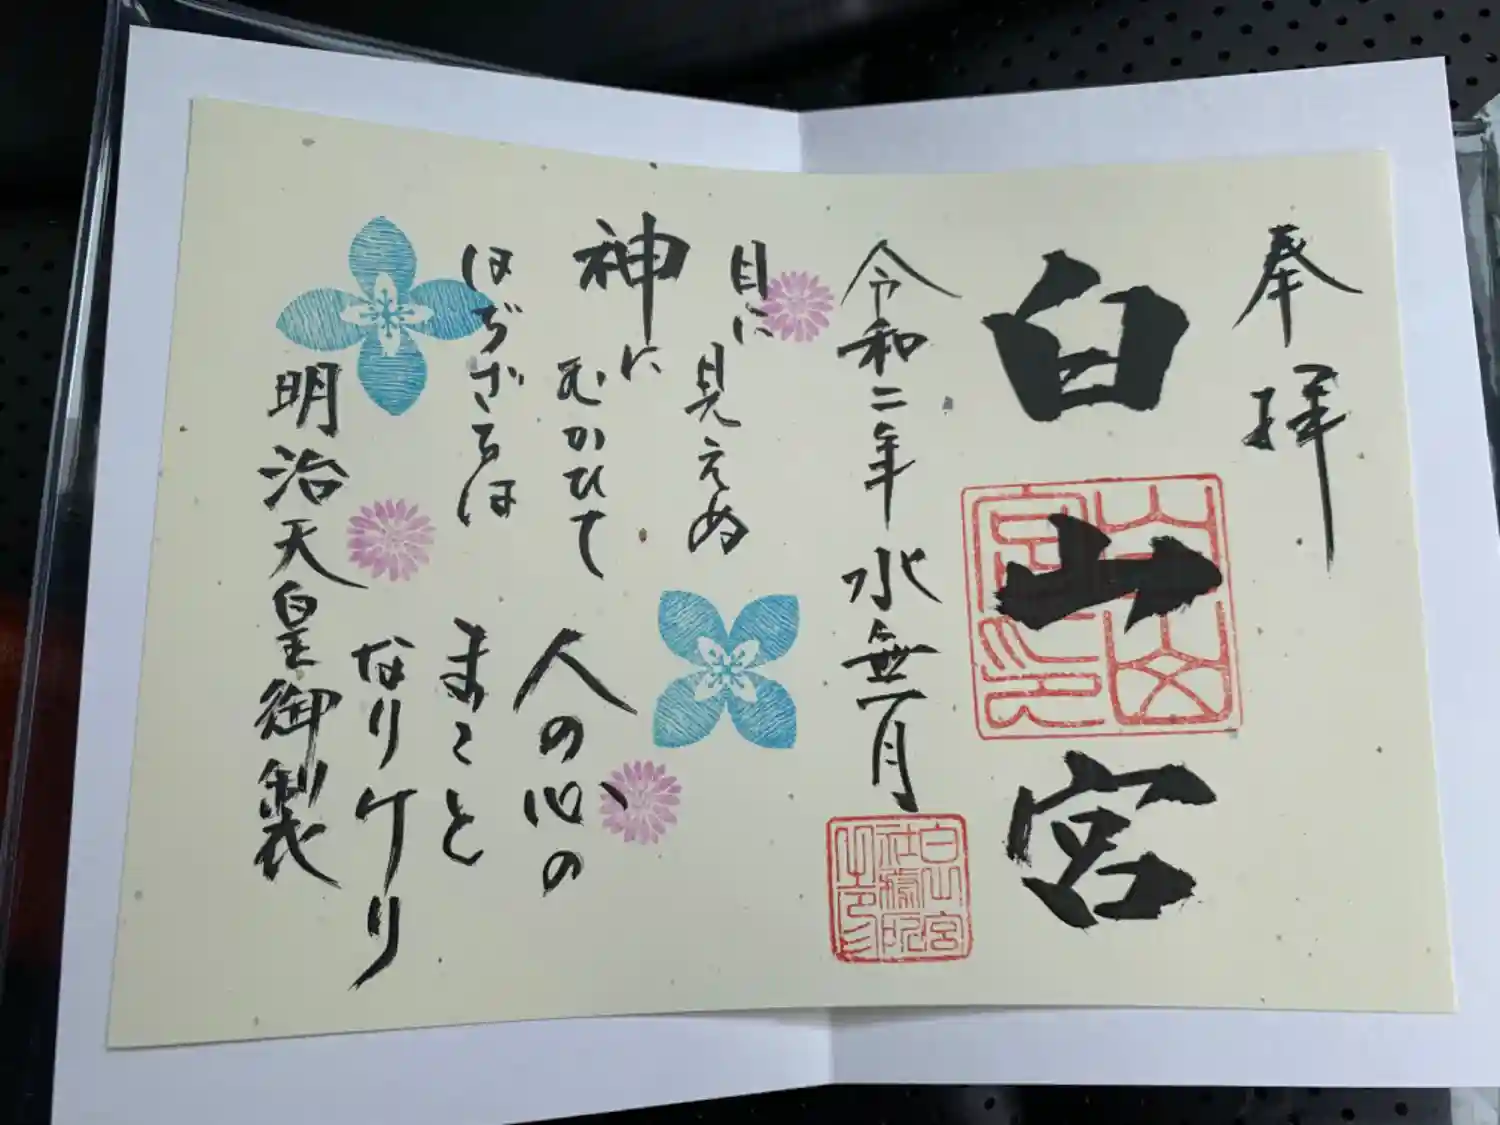 奉拝
白山宮
令和二年水無月
白山宮
社務所
之印
目に見えぬ
神にむかひて
はぢざるは
人の心の
まこと
なりけり
明治天皇御製